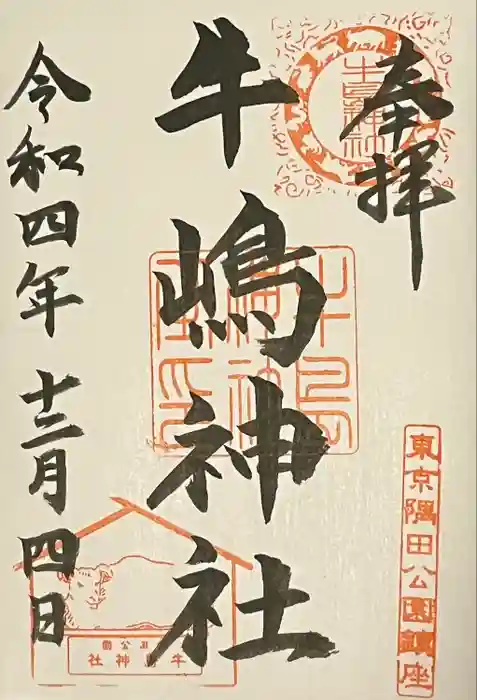 奉拝
牛嶋神社
令和四年十二月四日
東京隅田公園鎮座
牛嶋神社